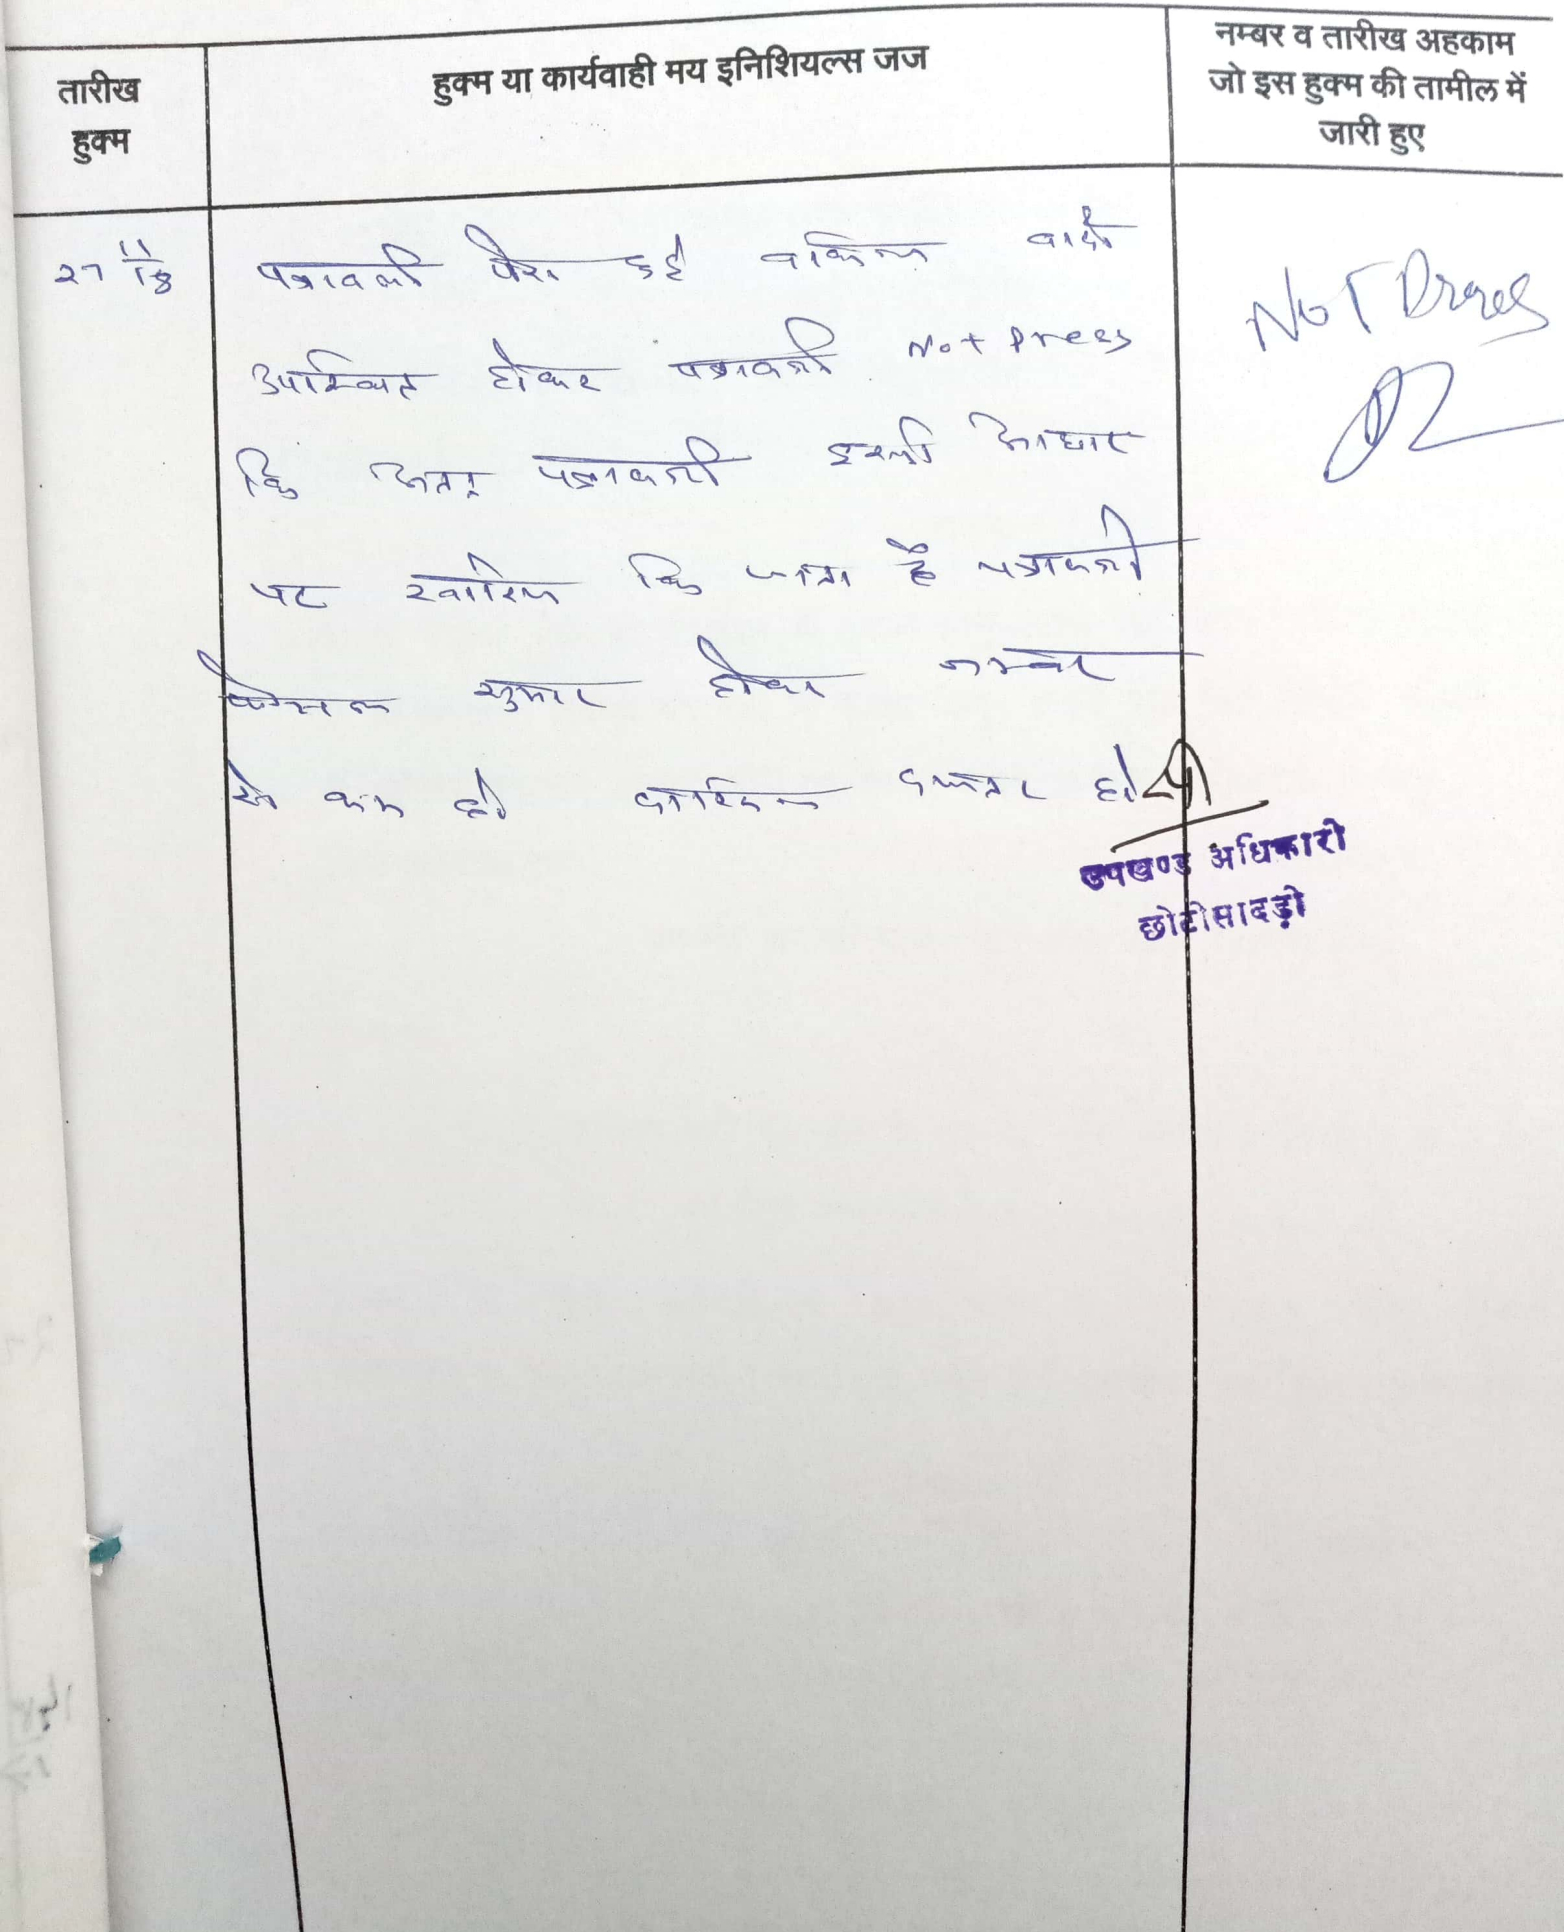 तारीख
हुक्म
हुक्म या कार्यवाही मय इनिशियल्स जज
नम्बर व तारीख अहकाम
जो इस हुक्म की तामील में
जारी हुए
27 11/18
पत्रावली पेश हुई वकिल वादी
उपस्थित होकर पत्रावली Not press
कि अतः पत्रावली इसी आधार
पर खारिज कि जाता है पत्रावली
फैसल सुमार होकर नम्बर
से कम हो दाखिल दफ्तर हो
Not Press
उपखण्ड अधिकारी
छोटीसादड़ी